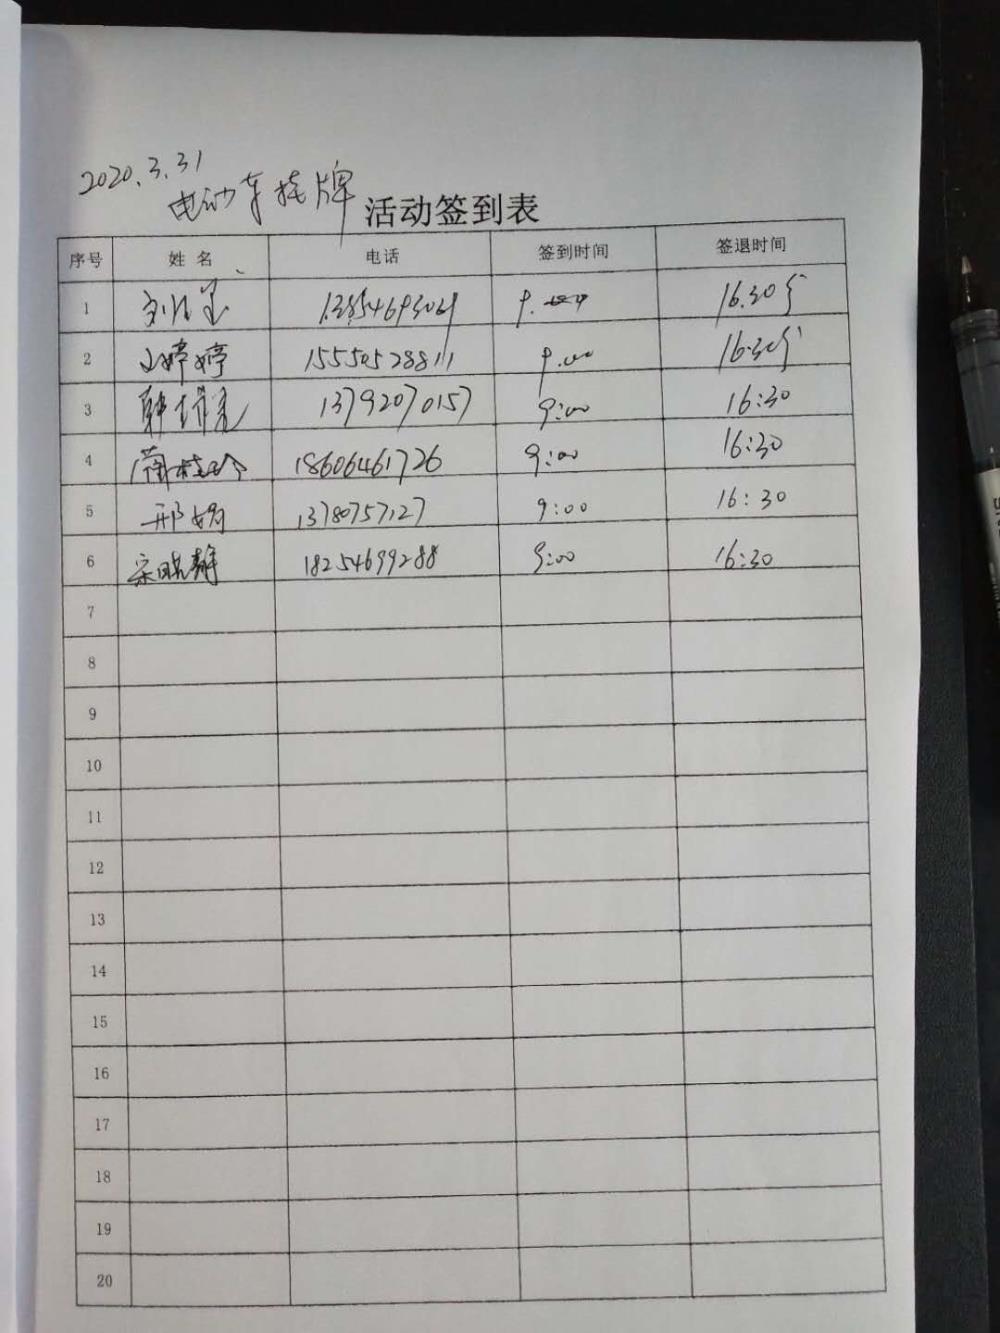 2020.3.31
电动车挂牌 活动签到表
序号 姓名 电话 签到时间 签退时间
1 16.30分
2 婷婷 15550528811 9.00 16.30分
3 韩 13792070157 9:00 16:30
4 18606461726 9:00 16:30
5 邢娟 13780757127 9:00 16:30
6 宋晓静 18254699288 9:00 16:30
7
8
9
10
11
12
13
14
15
16
17
18
19
20